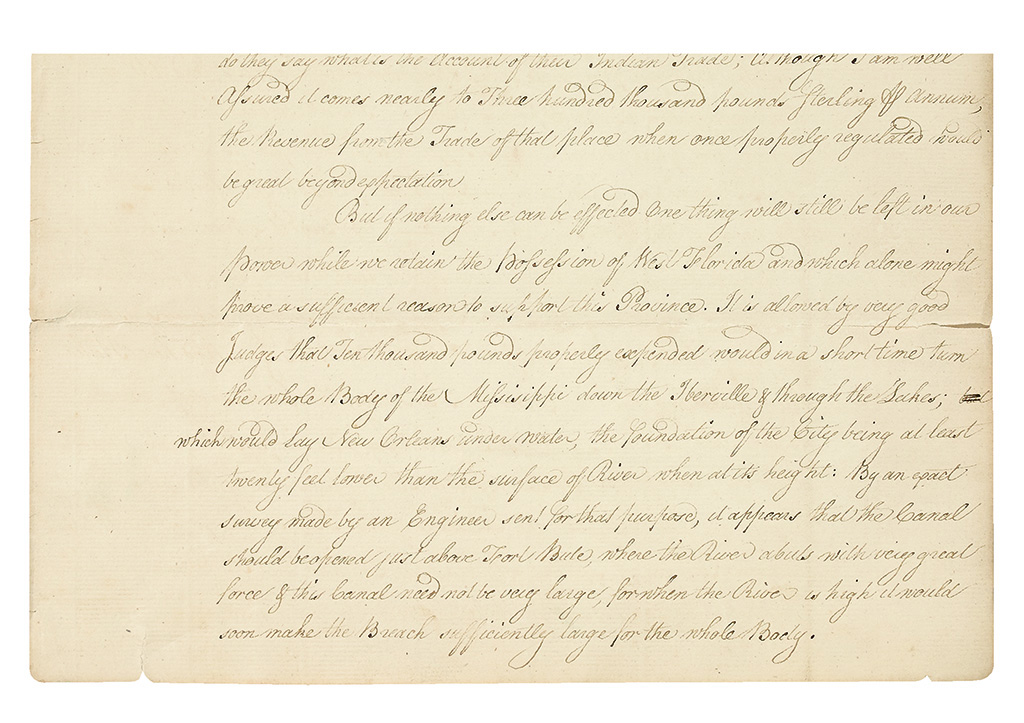 do they say what is the Account of their Indian Trade; although I am well
Assured it comes nearly to Three hundred thousand pounds Sterling ⅌ Annum,
the Revenue from the Trade of that place when once properly regulated would
be great beyond expectation
But if nothing else can be effected One thing will still be left in our
power while we retain the possession of West Florida and which alone might
prove a sufficient reason to support this Province. It is allowed by very good
Judges that Ten thousand pounds properly expended would in a short time turn
the whole Body of the Missisippi down the Iberville & through the Lakes;
which would lay New Orleans under water, the foundation of the City being at least
twenty feet lower than the surface of River when at its height: By an exact
survey made by an Engineer sent for that purpose, it appears that the Canal
should be opened just above Fort Bute, where the River abuts with very great
force & this Canal need not be very large, for when the River is high it would
soon make the Breach sufficiently large for the whole Body.